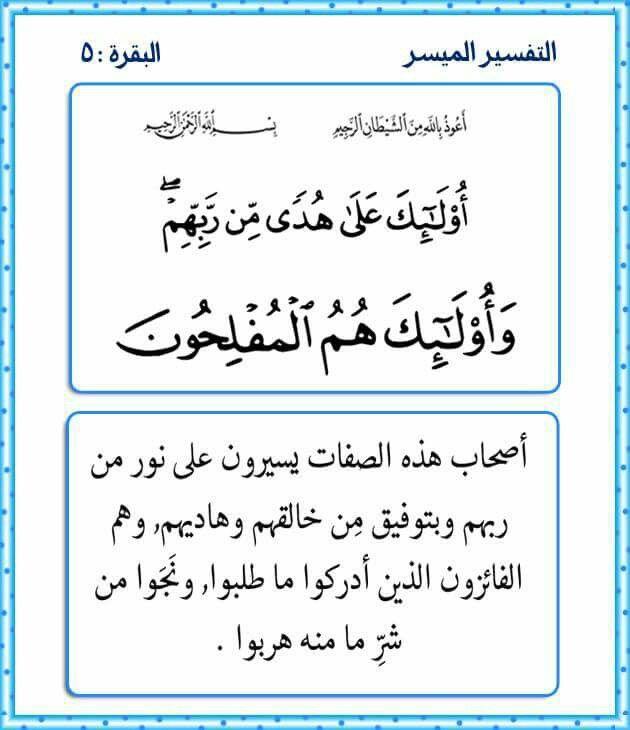 التفسير الميسر
البقرة :٥
أعوذ بالله من الشيطان الرجيم
بسم الله الرحمن الرحيم
أُوْلَٰٓئِكَ عَلَىٰ هُدٗى مِّن رَّبِّهِمۡۖ
وَأُوْلَٰٓئِكَ هُمُ ٱلۡمُفۡلِحُونَ
أصحاب هذه الصفات يسيرون على نور من
ربهم وبتوفيق مِن خالقهم وهاديهم, وهم
الفائزون الذين أدركوا ما طلبوا, ونَجَوا من
شرِّ ما منه هربوا .